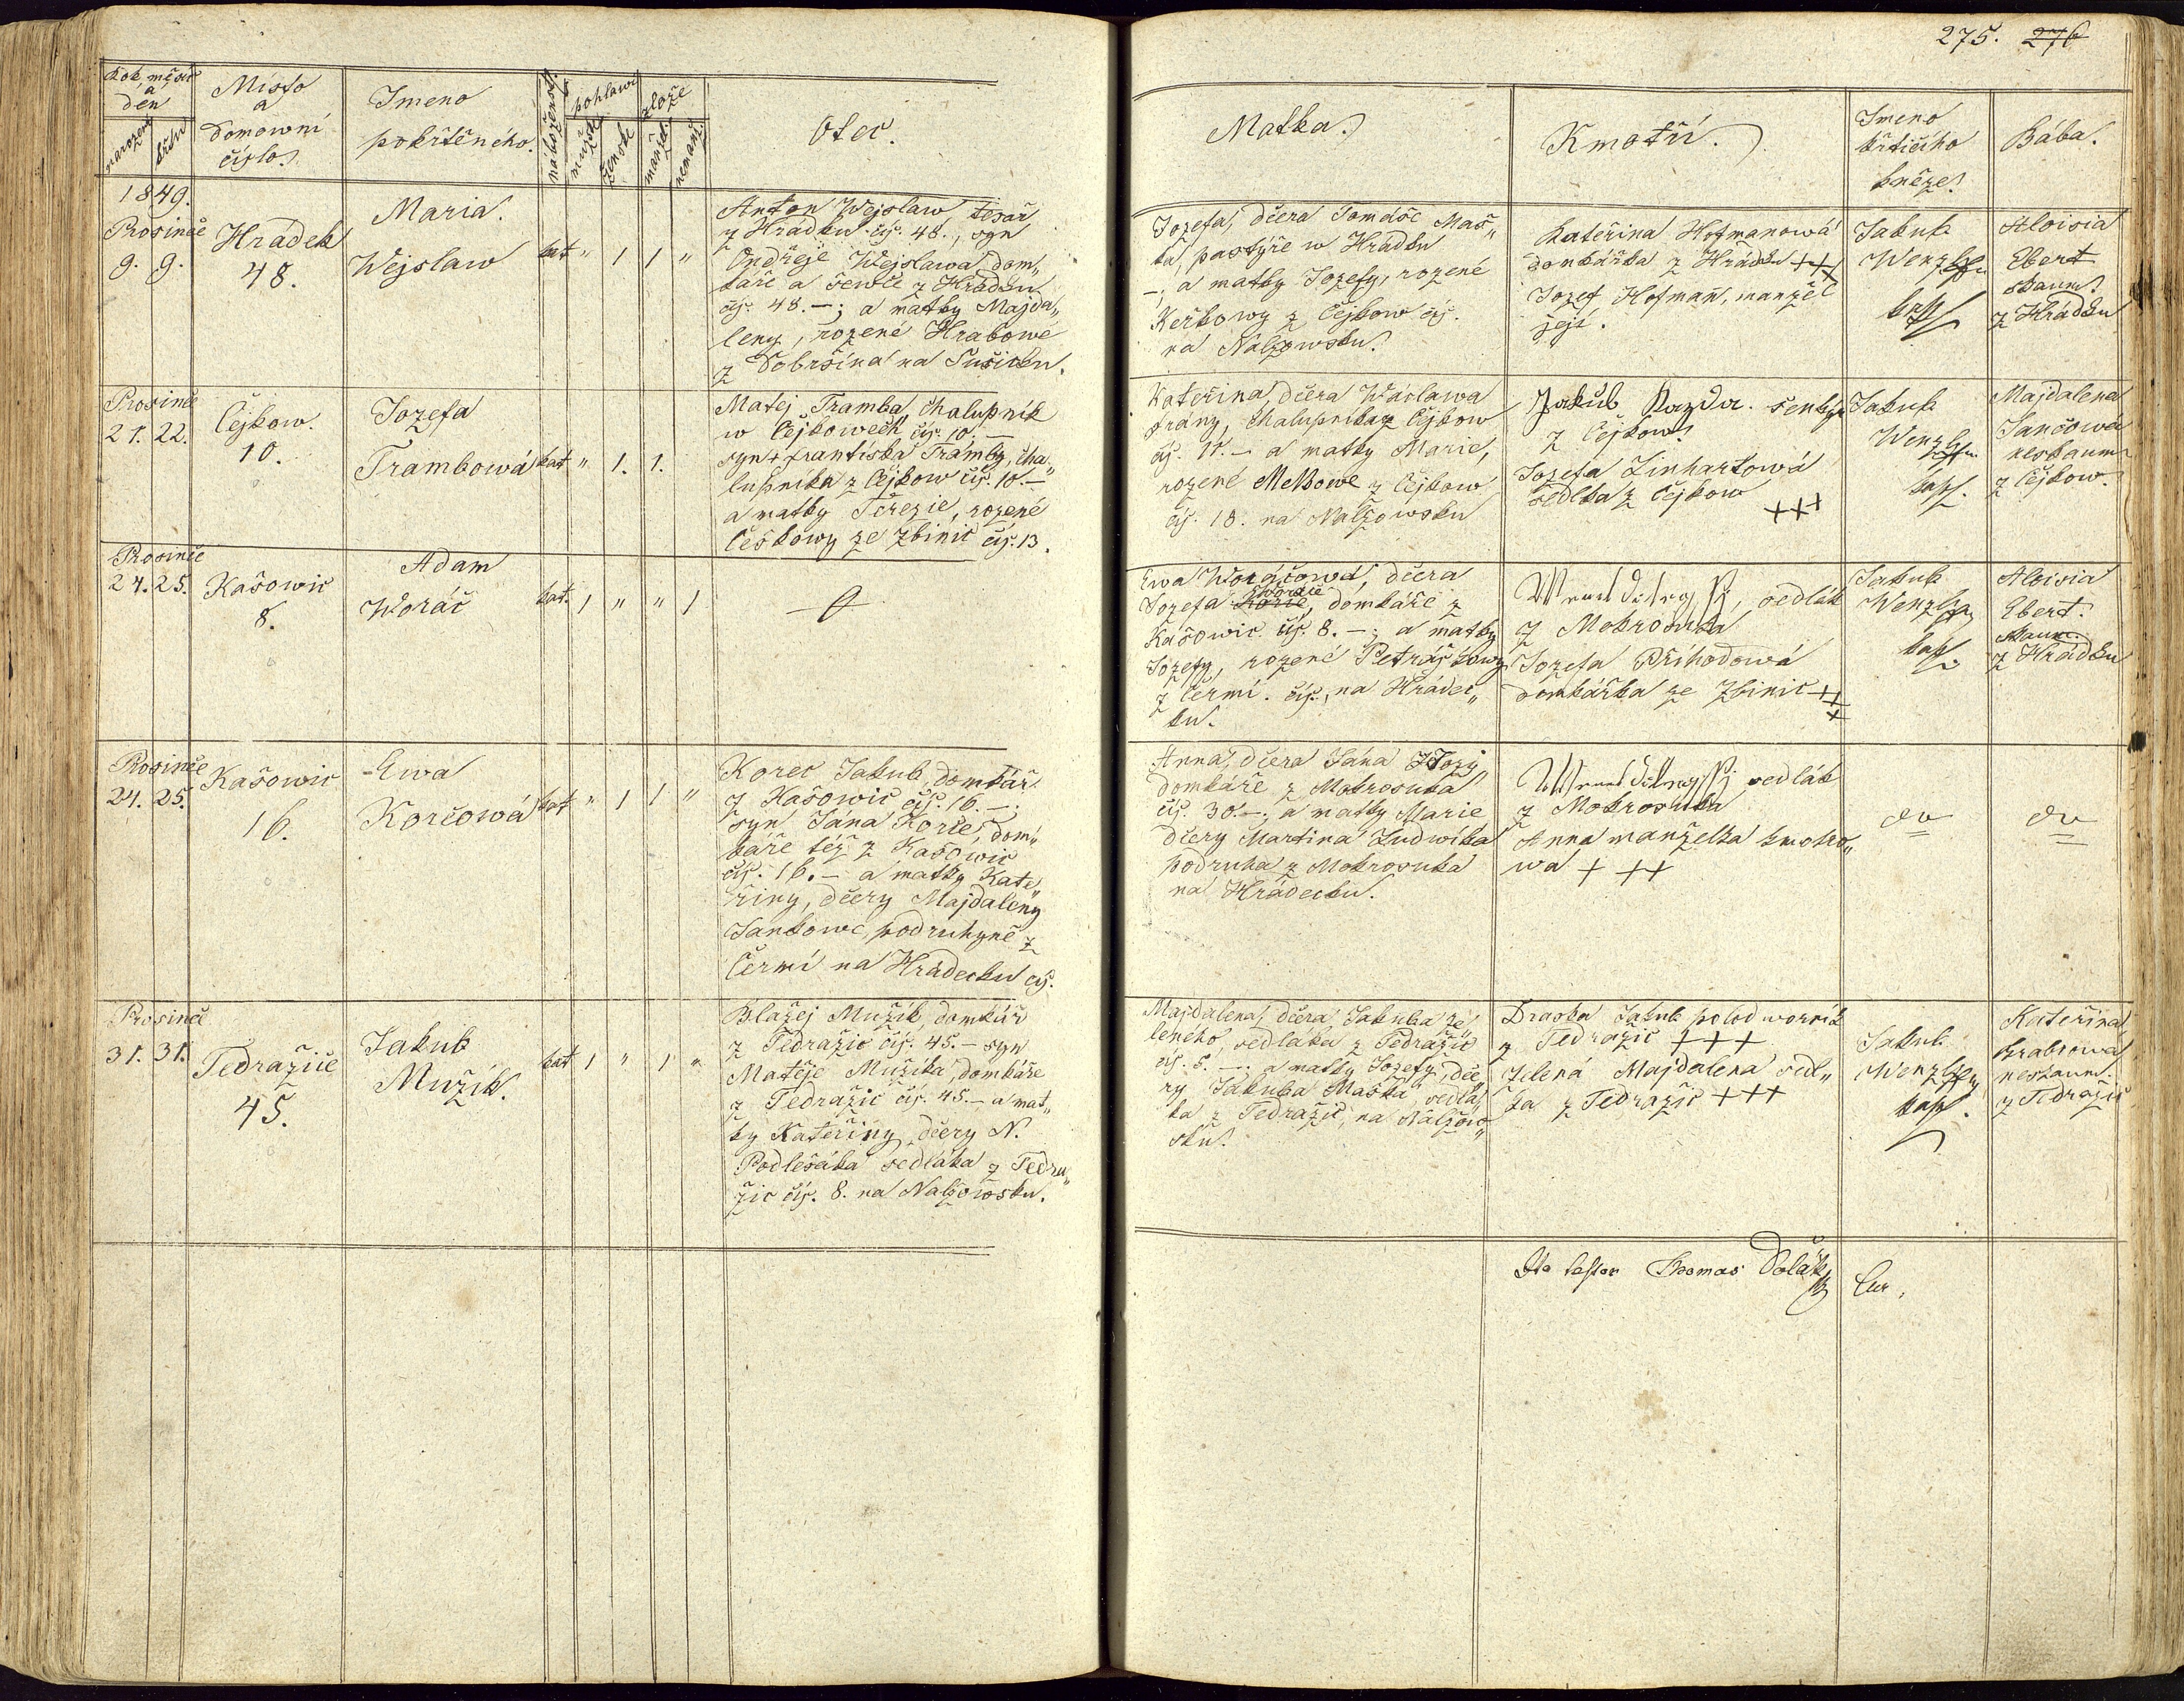 275. 276
Rok, měsíc
a
den
narozen
křtu
Místo
a
Domowní
čislo.
Jmeno
pokřtěného.
náboženst.
pohlawí
mužské
ženské
lože
manžel.
nemanž.
Otec.
Matka.
Kmotři.
Jmeno
křtícího
kněze.
Bába.
1849.
Prosince
9. 9.
Hradek
48.
Maria.
Wejslaw
kat " 1 1 "
Anton Wejslaw, tesař
z Hrádku čís. 48., syn
Ondřeje Wejslawa, dom„
káře a ševce z Hrádku
čís. 48. –; a matky Majda„
leny, rozené Hrabowé
z Dobršína na Sušicku.
Jozefa, dčera Tomáše Maš„
ka, pastýře w Hrádku
–; a matky Jozefy, rozené
z Čejkow čís.
na Nalžowsku.
Kateřina Hofmanowá
domkářka z Hrádku +++
Jozef Hofmann, manžel
její.
Jakub
Wenzl
Aloisia
Ebert
zkaum.
z Hrádku
Prosince
21. 22.
Čejkow.
10.
Jozefa
Trambowá
kat " 1. 1.
Matej Tramba, chalupník
w Čejkowech čís. 10. –
syn + Frantíska Tramby, cha„
lupníka z Čejkow čís. 10. –
a matky Terezie, rozené
Češkowy ze Zbinic čís. 13.
Kateřina, dčera Wáclawa
Frány, chalupníka z Čejkow
čís. 11. – a matky Marie,
rozené z Čejkow
čís. 18. na Nalžowsku
Jakub
z Čejkow.
Jozefa Linhartowá
sedlka z Čejkow
+++
Jakub
Wenzl
kapl.
Majdalena
Jančowá
neskaum
z Čejkow.
Prosince
24. 25.
Kašowic
8.
Adam
Woráč
kat. 1 " " 1
Ewa Woráčowá, dčera
Jozefa Woráče, domkáře z
Kašowic čís. 8. –; a matky
Jozefy, rozené Petráškowy
z Čermí. čís., na Hrádec„
ku.
sedlák
z Mokrosuka
Jozefa Příhodowá
domkářka ze Zbinic +++
Jakub
Wenzl
kapl.
Aloisia
Ebert.
zkaum.
z Hrádku
Prosince
24. 25.
Kašowic
16.
Ewa
Korcowá
kat " 1 1 "
Korec Jakub, domkář
z Kašowic čís. 16. –.
syn Jána Korce, dom„
káře též z Kašowic
čís. 16. – a matky Kate„
řiny, dčery Majdaleny
Jankowé, podruhyně z
Čermí na Hrádecku čís.
Anna, dčera Jána
domkáře z Mokrosuka
čís. 30. –; a matky Marie
dčery Martina Ludwíka
podruha z Mokrosuka
na Hrádecku.
sedlák
z Mokrosuka
Anna manželka kmotro„
wa + ++
Prosince
31. 31.
Tedražice
45.
Jakub
Mužík.
kat 1 " 1 "
Blažej Mužík, domkář
z Tedražic čís. 45. – syn
Matěje Mužíka, domkáře
z Tedražic čís. 45. – a mat„
ky Kateřiny, dčery N.
Podlešáka sedláka z Tedra„
žic čís. 8. na Nalžowsku.
Majdalena, dčera Jakuba Ze„
leného, sedláka z Tedražic
čís. 5. –; a matky Jozefy, dče„
ry Jakuba Maška, sedlá„
ka z Tedražic, na Nalžow„
sku.
Draska Jakub polodworník
z Tedražic +++
Zelená Majdalena sedl„
ka z Tedražic +++
Jakub
Wenzl
kapl.
Kateřina
neskaum.
z Tedražic
Ita testor Thomas Cur.